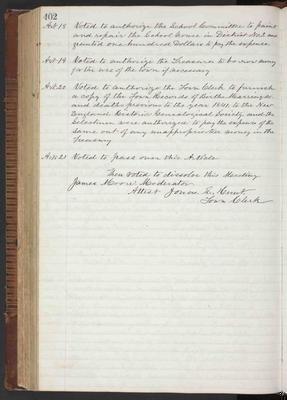 402
Art 18 Voted to authorize the School Committee to paint
and repair the School House in District No 2 and
granted one hundred Dollars to pay the expense
Art 19 Voted to authorize the Treasurer to borrow money
for the use of the town if necessary
Art 20 Voted to authorize the Town Clerk to furnish
a copy of the Town Records of Births Marriages
and deaths previous to the year 1841 to the New
England Historic Genealogical Society and the
Selectmen were authorized to pay the expense of the
same out of any unappropriated money in the
Treasury
Art 21 Voted to pass over this Article
Then voted to dissolve this Meeting
James Moore Moderator
Attest Jonas Hunt
Town Clerk